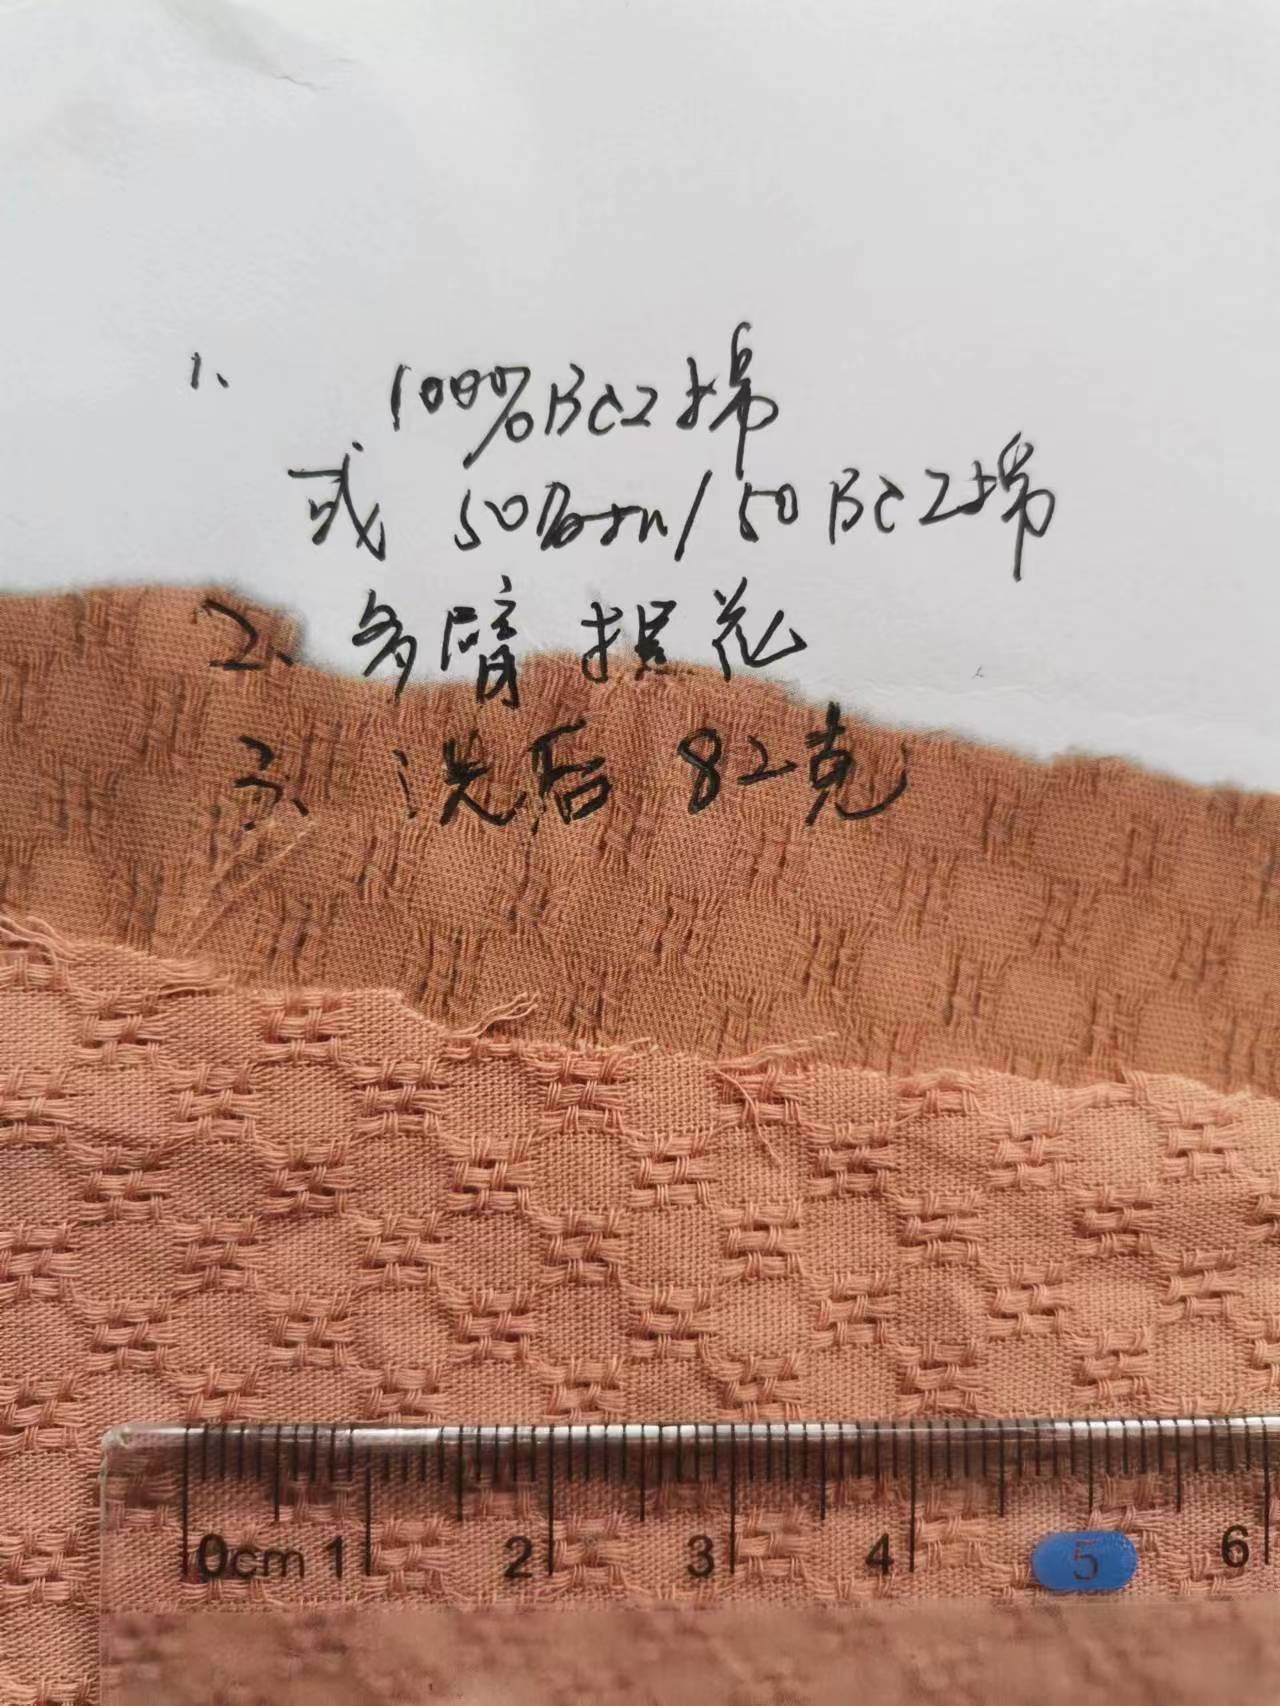 1、 100%BCI棉
或 50%Bam/50BCI棉
2、多臂提花
3、洗后 82克
0cm 1 2 3 4 5 6